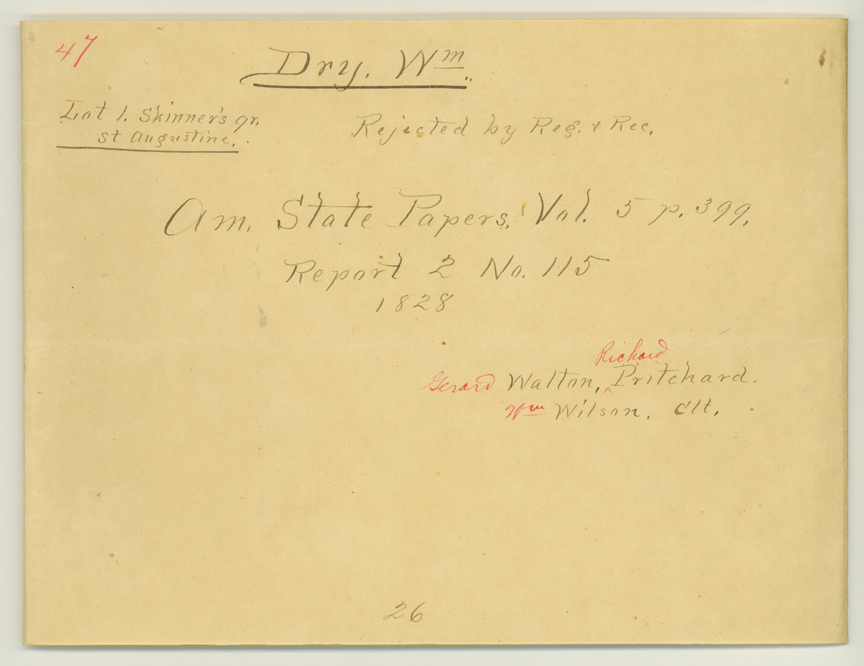 47
Dry, Wm.
Lot 1. Skinner's qr,
St Augustine.
Rejected by Reg. & Rec.
Am. State Papers, Vol. 5 p. 399.
Report 2 No. 115
1828
Richard
Gerard Walton, ^ Pritchard.
Wm Wilson. clt.
26